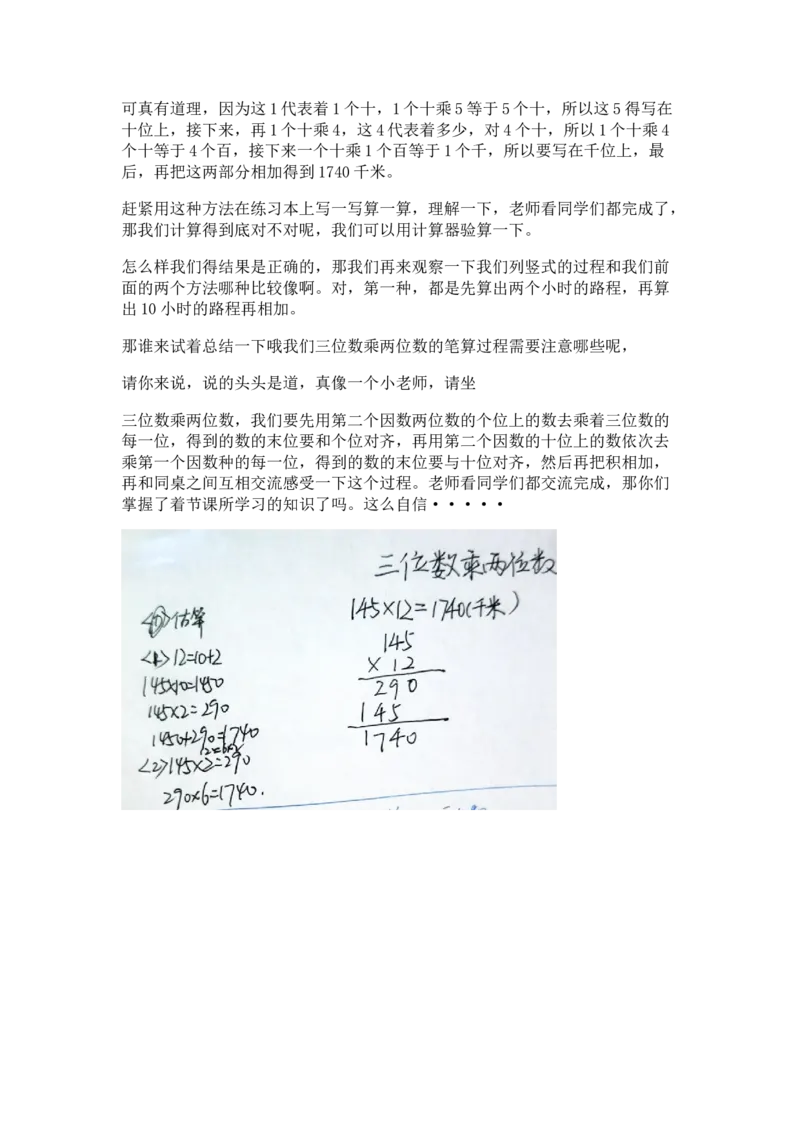 可真有道理，因为这1代表着1个十，1个十乘5等于5个十，所以这5得写在
十位上，接下来，再1个十乘4，这4代表着多少，对4个十，所以1个十乘4
个十等于4个百，接下来一个十乘1个百等于1个千，所以要写在千位上，最
后，再把这两部分相加得到1740千米。
赶紧用这种方法在练习本上写一写算一算，理解一下，老师看同学们都完成了，
那我们计算得到底对不对呢，我们可以用计算器验算一下。
怎么样我们得结果是正确的，那我们再来观察一下我们列竖式的过程和我们前
面的两个方法哪种比较像啊。对，第一种，都是先算出两个小时的路程，再算
出10小时的路程再相加。
那谁来试着总结一下哦我们三位数乘两位数的笔算过程需要注意哪些呢，
请你来说，说的头头是道，真像一个小老师，请坐
三位数乘两位数，我们要先用第二个因数两位数的个位上的数去乘着三位数的
每一位，得到的数的末位要和个位对齐，再用第二个因数的十位上的数依次去
乘第一个因数种的每一位，得到的数的末位要与十位对齐，然后再把积相加，
再和同桌之间互相交流感受一下这个过程。老师看同学们都交流完成，那你们
掌握了着节课所学习的知识了吗。这么自信·····
三位数乘两位数
145×12=1740(千米)
145
× 12
290
145
1740
估算
<1>12=10+2
145×10=1450
145×2=290
1450+290=1740
<2>145×2=290
290×6=1740.